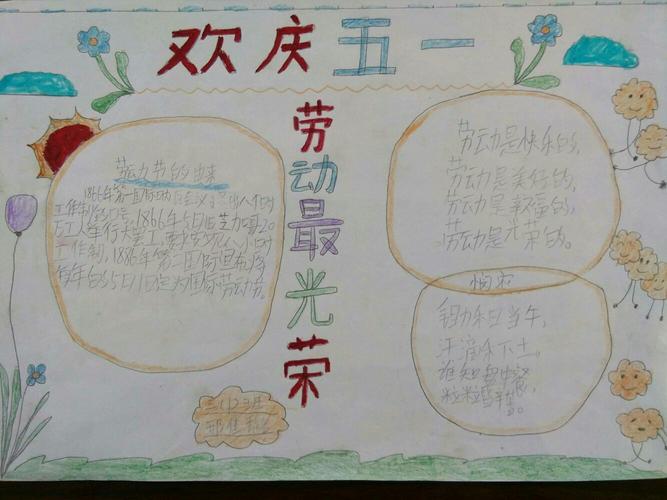 欢庆五一
劳动最光荣
劳动节的由来
1866年第一国际
工作制的口号,1866年5月1日芝加哥20
万工人举行大罢工,要求实现八小时
工作制,1886年第二国际宣布将
每年的5月1日定为国际劳动节。
劳动是快乐的,
劳动是美好的,
劳动是幸福的,
劳动是光荣的。
悯农
锄禾日当午,
汗滴禾下土。
谁知盘中餐,
粒粒皆辛苦。
三(1)班